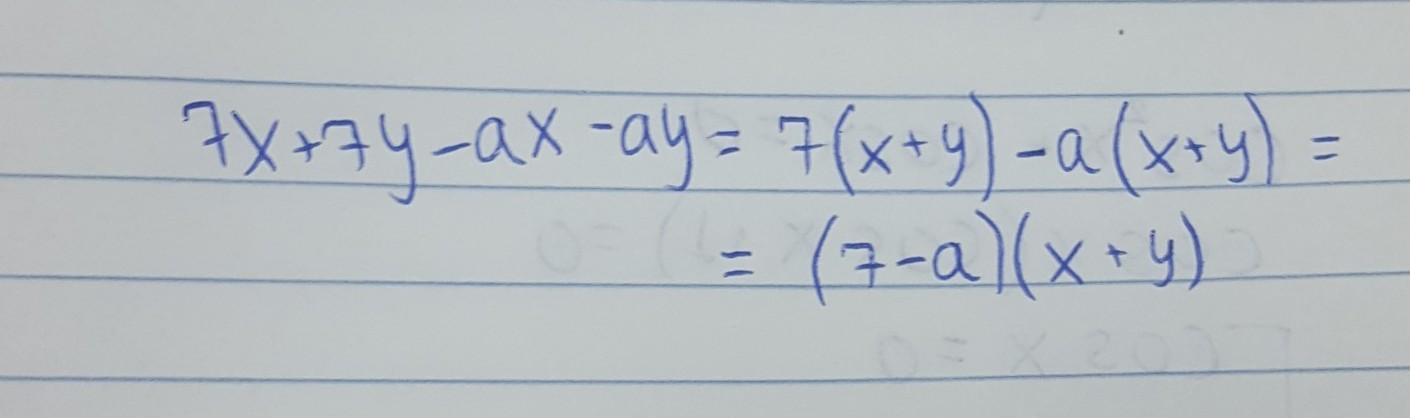 7x+7y-ax-ay=7(x+y)-a(x+y)=
=(7-a)(x+y)